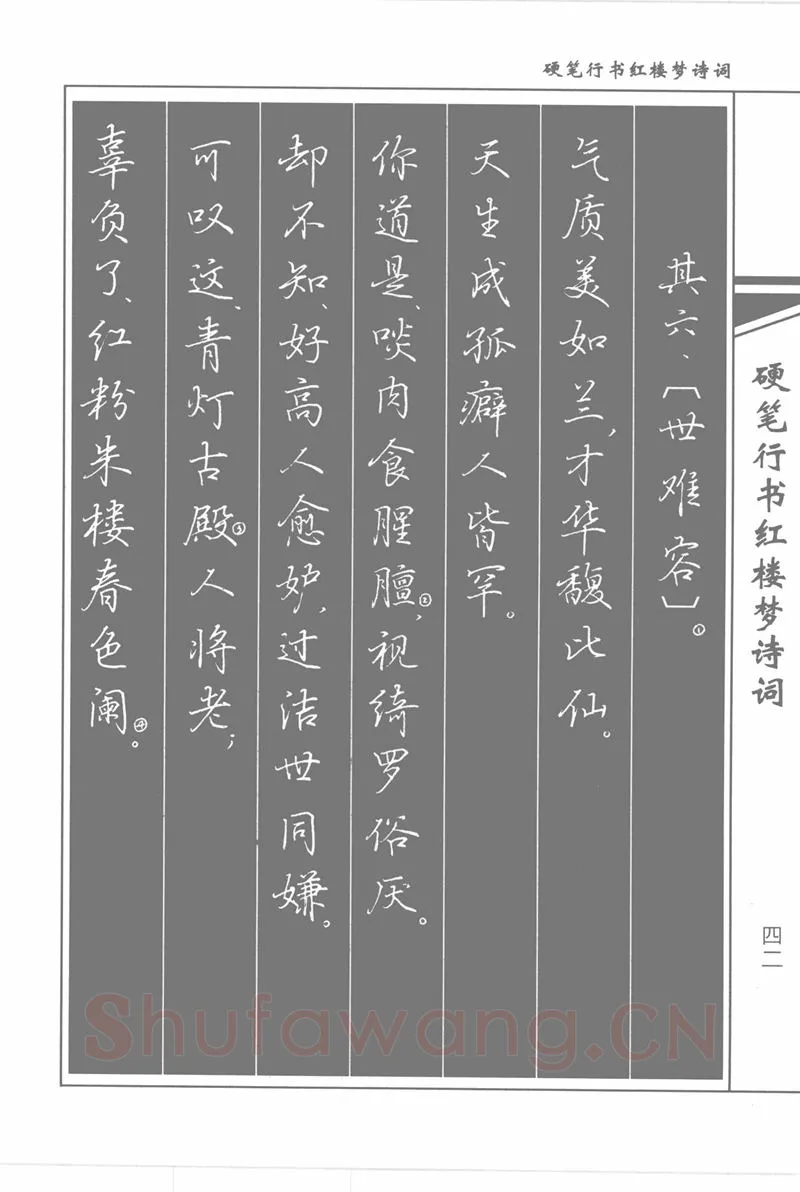 硬笔行书红楼梦诗词
其六、〔世难容〕①
气质美如兰,才华馥比仙。
天生成孤癖人皆罕。
你道是、啖肉食腥膻②,视绮罗俗厌。
却不知、好高人愈妒,过洁世同嫌。
可叹这、青灯古殿③人将老;
辜负了、红粉朱楼春色阑④。
硬笔行书红楼梦诗词
四二
Shufawang.CN